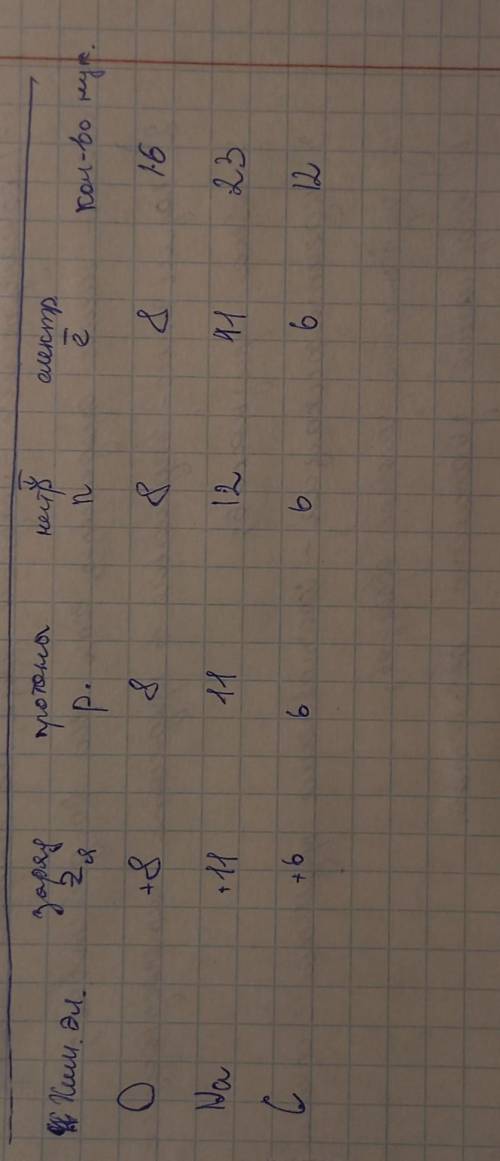 Хим. эл. заряд Z я протоны p. нейтр n электр ē кол-во нук.
O +8 8 8 8 16
Na +11 11 12 11 23
C +6 6 6 6 12